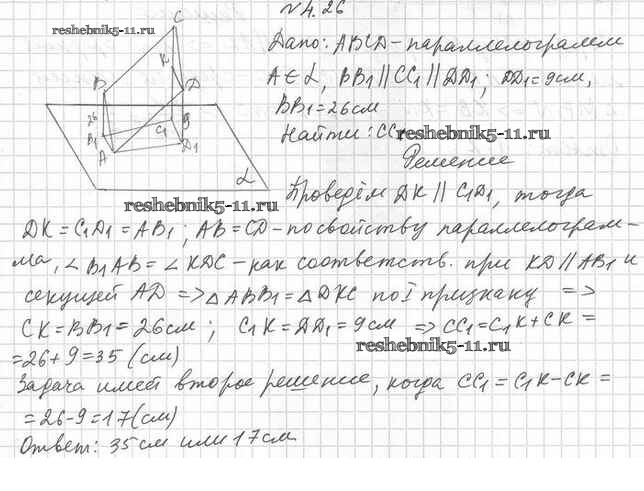 №4.26
reshebnik5-11.ru
Дано: ABCD-параллелограмм
A∈α, BB₁||CC₁||DD₁; DD₁=9см,
BB₁=26см
Найти: CC₁
reshebnik5-11.ru
Решение
Проведём DK || C₁D₁, тогда
reshebnik5-11.ru
DK=C₁D₁=AB₁; AB=CD-по свойству параллелограм-
ма, ∠B₁AB=∠KDC-как соответств. при KD||AB₁ и
секущей AD => △ABB₁=△DKC по I признаку =>
CK=BB₁=26см; C₁K=DD₁=9см => CC₁=C₁K+CK=
=26+9=35 (см)
reshebnik5-11.ru
Задача имеет второе решение, когда CC₁=C₁K-CK=
=26-9=17(см)
Ответ: 35см или 17см
C
K
B
D
26
B₁
C₁
9
A
D₁
α